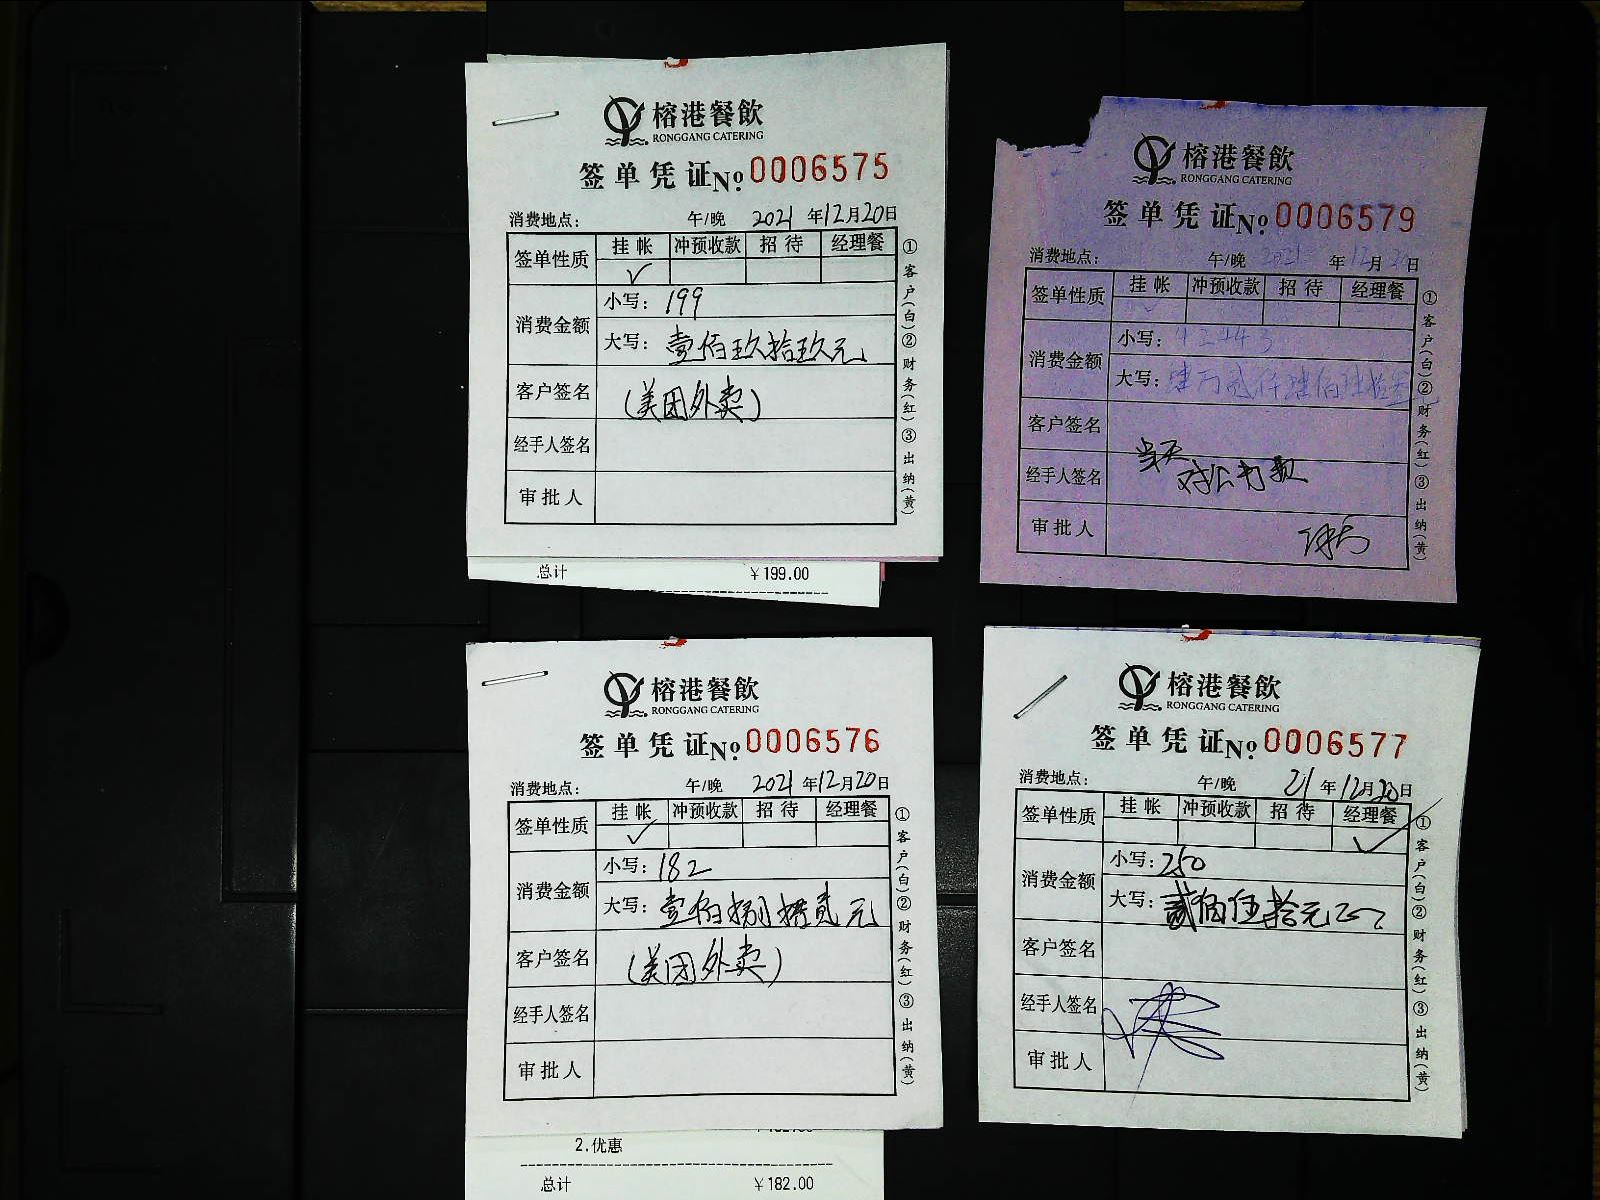 榕港餐飲
RONGGANG CATERING
签单凭证No.0006575
消费地点： 午/晚 2021年12月20日
签单性质 挂帐 冲预收款 招待 经理餐
✓
消费金额 小写：199
大写：壹佰玖拾玖元
客户签名 (美团外卖)
经手人签名
审批人
①客户(白)②财务(红)③出纳(黄)
总计 ￥199.00
榕港餐飲
RONGGANG CATERING
签单凭证No.0006579
消费地点： 午/晚 2021年12月20日
签单性质 挂帐 冲预收款 招待 经理餐
✓
消费金额 小写：42443
大写：肆万贰仟肆佰
客户签名
当天
经手人签名 对公打款
审批人
①客户(白)②财务(红)③出纳(黄)
榕港餐飲
RONGGANG CATERING
签单凭证No.0006576
消费地点： 午/晚 2021年12月20日
签单性质 挂帐 冲预收款 招待 经理餐
✓
消费金额 小写：182
大写：壹佰捌拾贰元
客户签名 (美团外卖)
经手人签名
审批人
①客户(白)②财务(红)③出纳(黄)
2.优惠
总计 ￥182.00
榕港餐飲
RONGGANG CATERING
签单凭证No.0006577
消费地点： 午/晚 21年12月20日
签单性质 挂帐 冲预收款 招待 经理餐
✓
消费金额 小写：250
大写：贰佰伍拾元
客户签名
经手人签名
审批人
①客户(白)②财务(红)③出纳(黄)